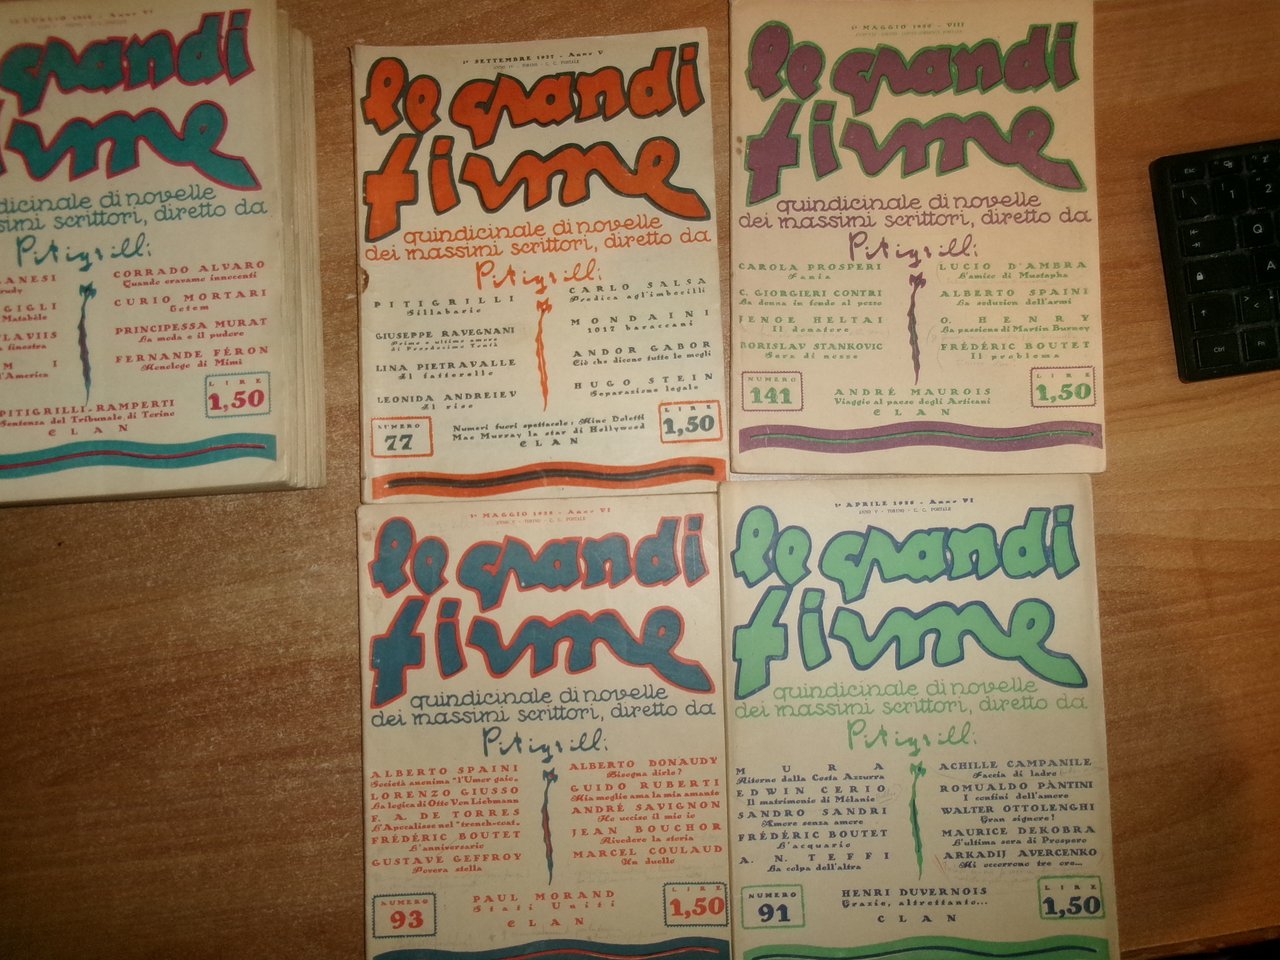 LUGLIO 1928 - Anno VI
grandi
firme
dicinale di novelle
simi scrittori, diretto da
Pitigrilli:
ANESI
rudy
GIGLI
Matabèle
LAVIIS
a finestra
M I
d'America
CORRADO ALVARO
Quando eravamo innocenti
CURIO MORTARI
PRINCIPESSA MURAT
La moda e il pudore
FERNANDE FÉRON
Monologo di Mimì
LIRE
1,50
PITIGRILLI-RAMPERTI
Sentenza del Tribunale di Torino
CLAN
1º SETTEMBRE 1927 - Anno V
ANNO IV - TORINO - C. C. POSTALE
le grandi
firme
quindicinale di novelle
dei massimi scrittori, diretto da
Pitigrilli:
PITIGRILLI
Sillabario
GIUSEPPE RAVEGNANI
Primo e ultimo amore
LINA PIETRAVALLE
Il fatterello
LEONIDA ANDREIEV
Il riso
CARLO SALSA
Predica agl'imbecilli
MONDAINI
1017 baraccani
ANDOR GABOR
Ciò che dicono tutte le mogli
HUGO STEIN
Separazione legale
NUMERO
77
Numeri fuori spettacolo: Mino Doletti
Mae Murray la star di Hollywood
CLAN
LIRE
1,50
1º MAGGIO 1930 - VIII
le grandi
firme
quindicinale di novelle
dei massimi scrittori, diretto da
Pitigrilli:
CAROLA PROSPERI
Fania
C. GIORGIERI CONTRI
La donna in fondo al pozzo
JENOE HELTAI
Il donatore
BORISLAV STANKOVIC
Sera di nozze
LUCIO D'AMBRA
L'amico di Mustapha
ALBERTO SPAINI
La seduzion dell'armi
O. HENRY
La passione di Martin Burney
FRÉDÉRIC BOUTET
Il problema
NUMERO
141
ANDRÉ MAUROIS
Viaggio al paese degli Articoni
CLAN
LIRE
1,50
1º MAGGIO 1928 - Anno VI
ANNO V - TORINO - C. C. POSTALE
le grandi
firme
quindicinale di novelle
dei massimi scrittori, diretto da
Pitigrilli:
ALBERTO SPAINI
Società anonima "l'Umor gaio"
LORENZO GIUSSO
La logica di Otto Von Liebmann
F. A. DE TORRES
L'Apocalisse nel "trench-coat"
FRÉDÉRIC BOUTET
L'anniversario
GUSTAVE GEFFROY
Povera stella
ALBERTO DONAUDY
Bisogna dirlo?
GUIDO RUBERTI
Mia moglie ama la mia amante
ANDRÉ SAVIGNON
Ho ucciso il mio io
JEAN BOUCHOR
Rivedere la storia
MARCEL COULAUD
Un duello
NUMERO
93
PAUL MORAND
Stati Uniti
CLAN
LIRE
1,50
1º APRILE 1928 - Anno VI
ANNO V - TORINO - C. C. POSTALE
le grandi
firme
quindicinale di novelle
dei massimi scrittori, diretto da
Pitigrilli:
MURA
Ritorno dalla Costa Azzurra
EDWIN CERIO
Il matrimonio di Mélanie
SANDRO SANDRI
Amore senza amore
FRÉDÉRIC BOUTET
L'acquario
A. N. TEFFI
La colpa dell'altra
ACHILLE CAMPANILE
Faccia di ladro
ROMUALDO PÀNTINI
I confini dell'amore
WALTER OTTOLENGHI
Gran signore!
MAURICE DEKOBRA
L'ultima sera di Prospero
ARKADIJ AVERCENKO
Mi occorrono tre oro...
NUMERO
91
HENRI DUVERNOIS
Grazie, altrettanto...
CLAN
LIRE
1,50
Esc
1
2
Q
A
Z
Ctrl
Fn